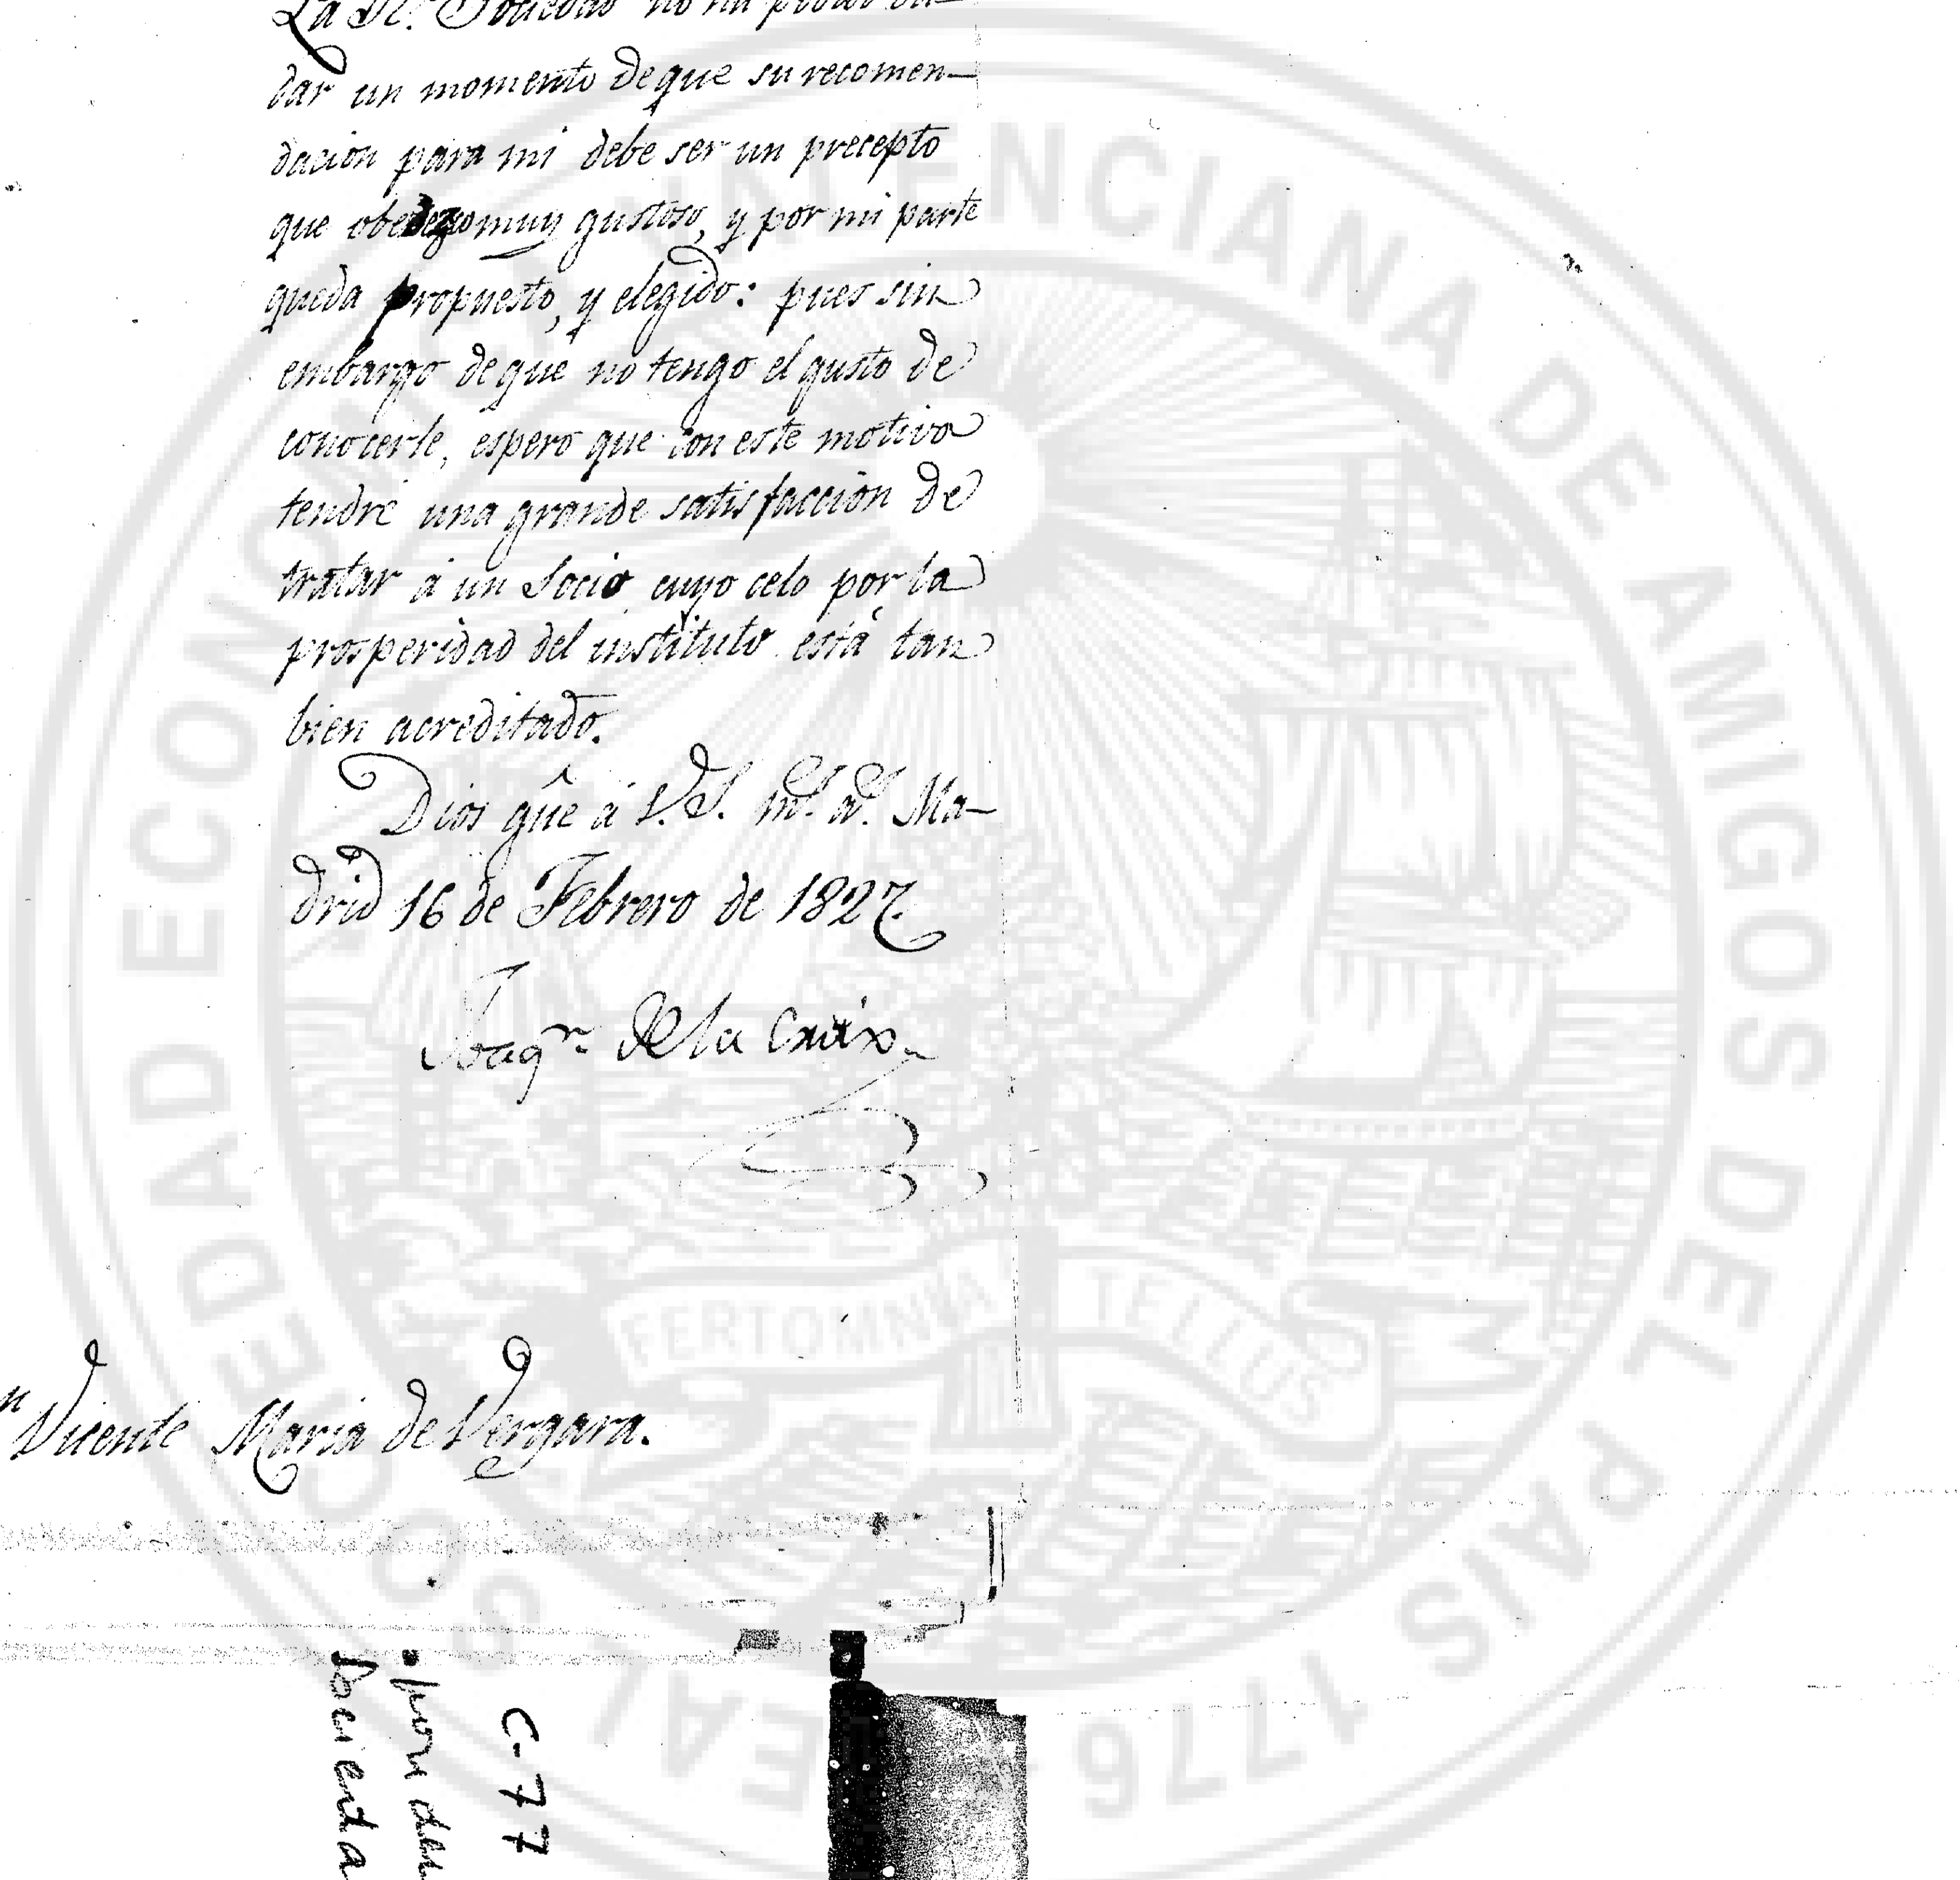 La Rl. Sociedad no ha podido du-
dar un momento de que su recomen-
dacion para mi debe ser un precepto
que obedezco muy gustoso, y por mi parte
queda propuesto, y elegido: pues sin
embargo de que no tengo el gusto de
conocerle, espero que con este motivo
tendré una grande satisfaccion de
tratar á un Socio cuyo celo por la
prosperidad del instituto está tan
bien acreditado.
Dios gûe á V.S. ms. as. Ma-
drid 16 de Febrero de 1827.
Joaqn. de la Croix.
Vicente Maria de Vergara.
C-77
REAL SOCIEDAD ECONOMICA VALENCIANA DE AMIGOS DEL PAIS 1776
FERT OMNIA TELLUS